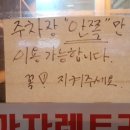 주차장 "안쪽"만
이용가능합니다.
꼭! 지켜주세요